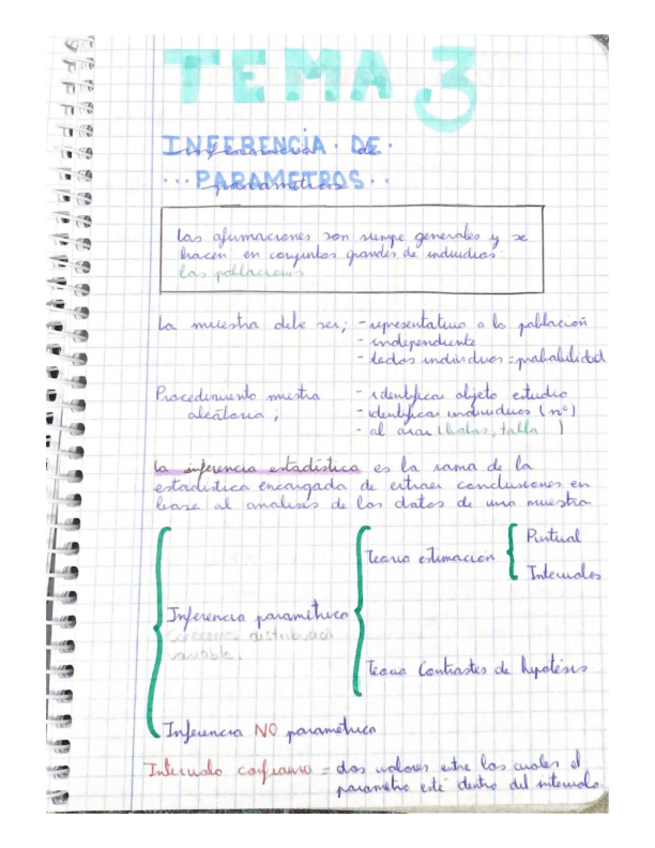 TEMA 3
INFERENCIA DE
PARAMETROS
Las afirmaciones son siempre generales y se
hacen en conjuntos grandes de individuos:
Las poblaciones
La muestra debe ser; - representativa a la población
- independiente
- todos individuos = probabilidad
Procedimiento muestra - identificar objeto estudio
aleatoria ; - identificar individuos (nº)
- al azar (bolas, tabla )
La inferencia estadística es la rama de la
estadística encargada de extraer conclusiones en
base al analisis de los datos de una muestra
Puntual
Teoria estimación
Intervalos
Inferencia paramétrica
distribución
variable.
Teoria Contrastes de hipotésis
Inferencia NO paramétrica
Intervalo confianza = dos valores entre los cuales el
parametro esté dentro del intervalo